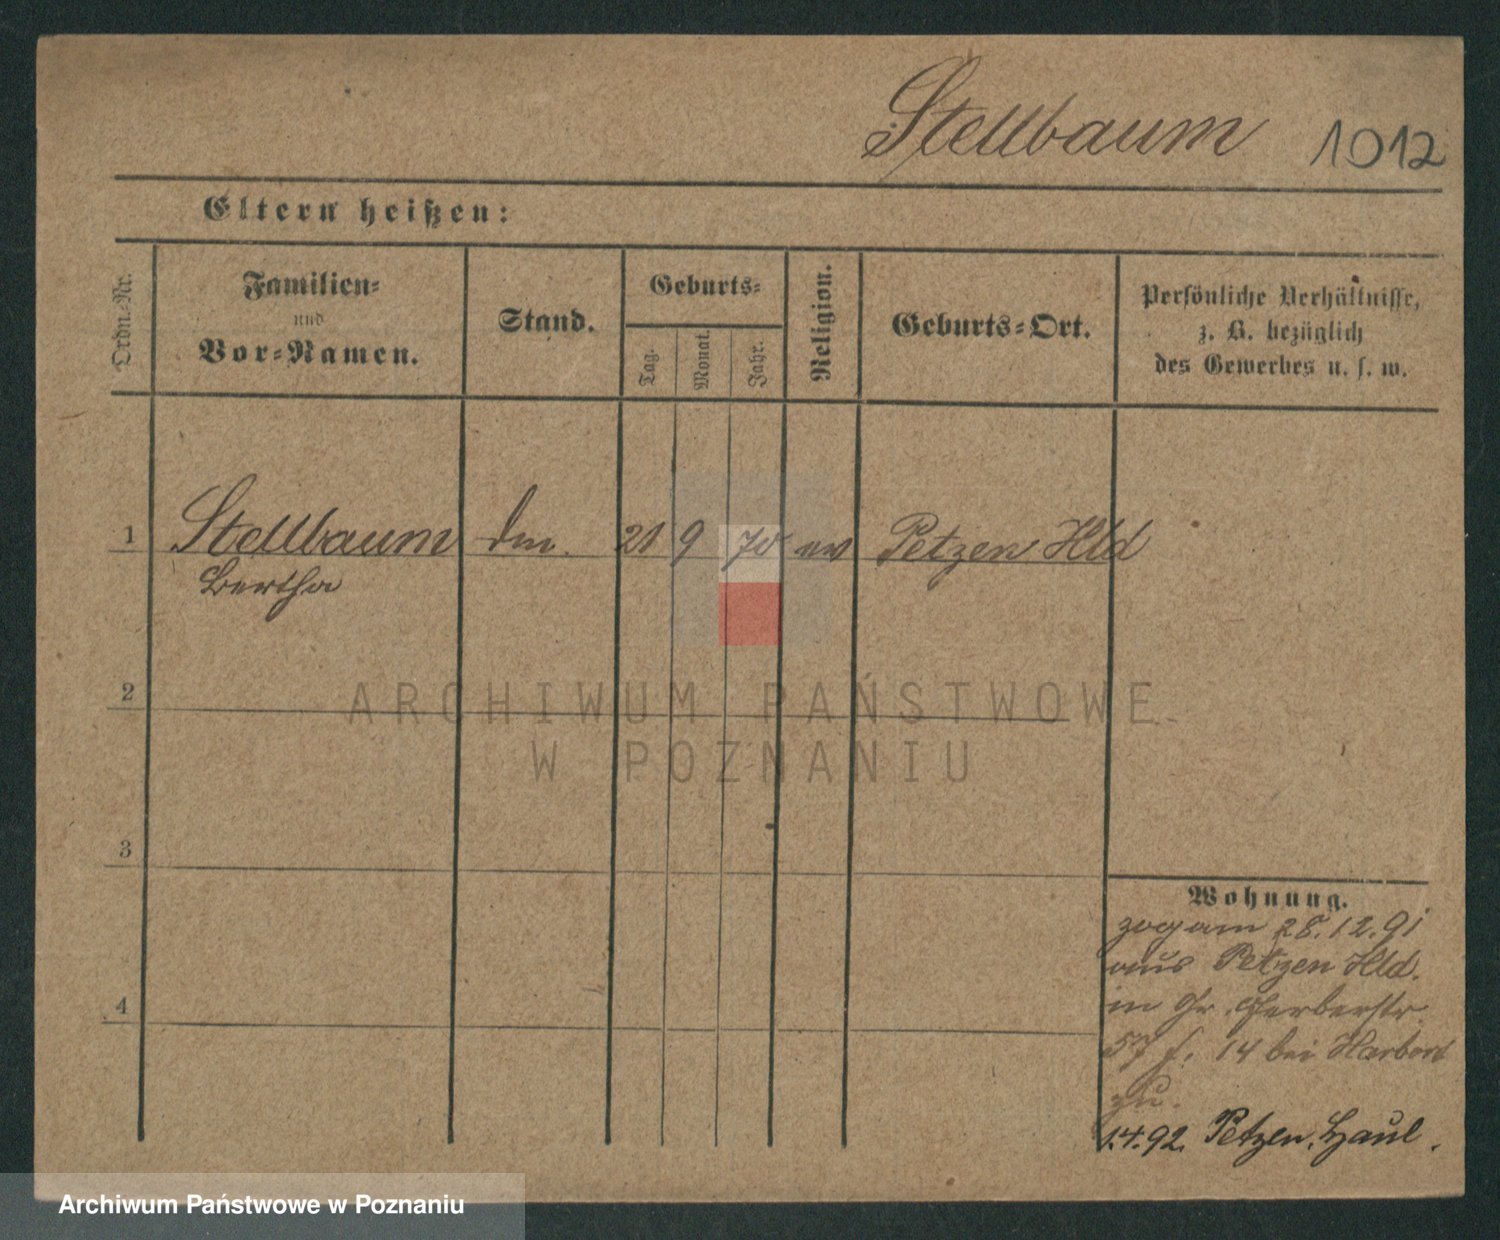 Stellbaum 1012
Eltern heißen:
Ordn.-Nr.
Familien-
und
Vor-Namen.
Stand.
Geburts-
Tag.
Monat.
Jahr.
Religion.
Geburts-Ort.
Persönliche Verhältnisse,
z. B. bezüglich
des Gewerbes u. s. w.
1 Stellbaum 21 9 70 ev Petzen Hld
Bertha
2
3
4
Wohnung.
zog am 28.12.91
aus Petzen Hld.
in Gr. Gerberstr
57 f. 14 bei Harbort
zu.
1.4.92. Petzen. Haul.
ARCHIWUM PAŃSTWOWE
W POZNANIU
Archiwum Państwowe w Poznaniu